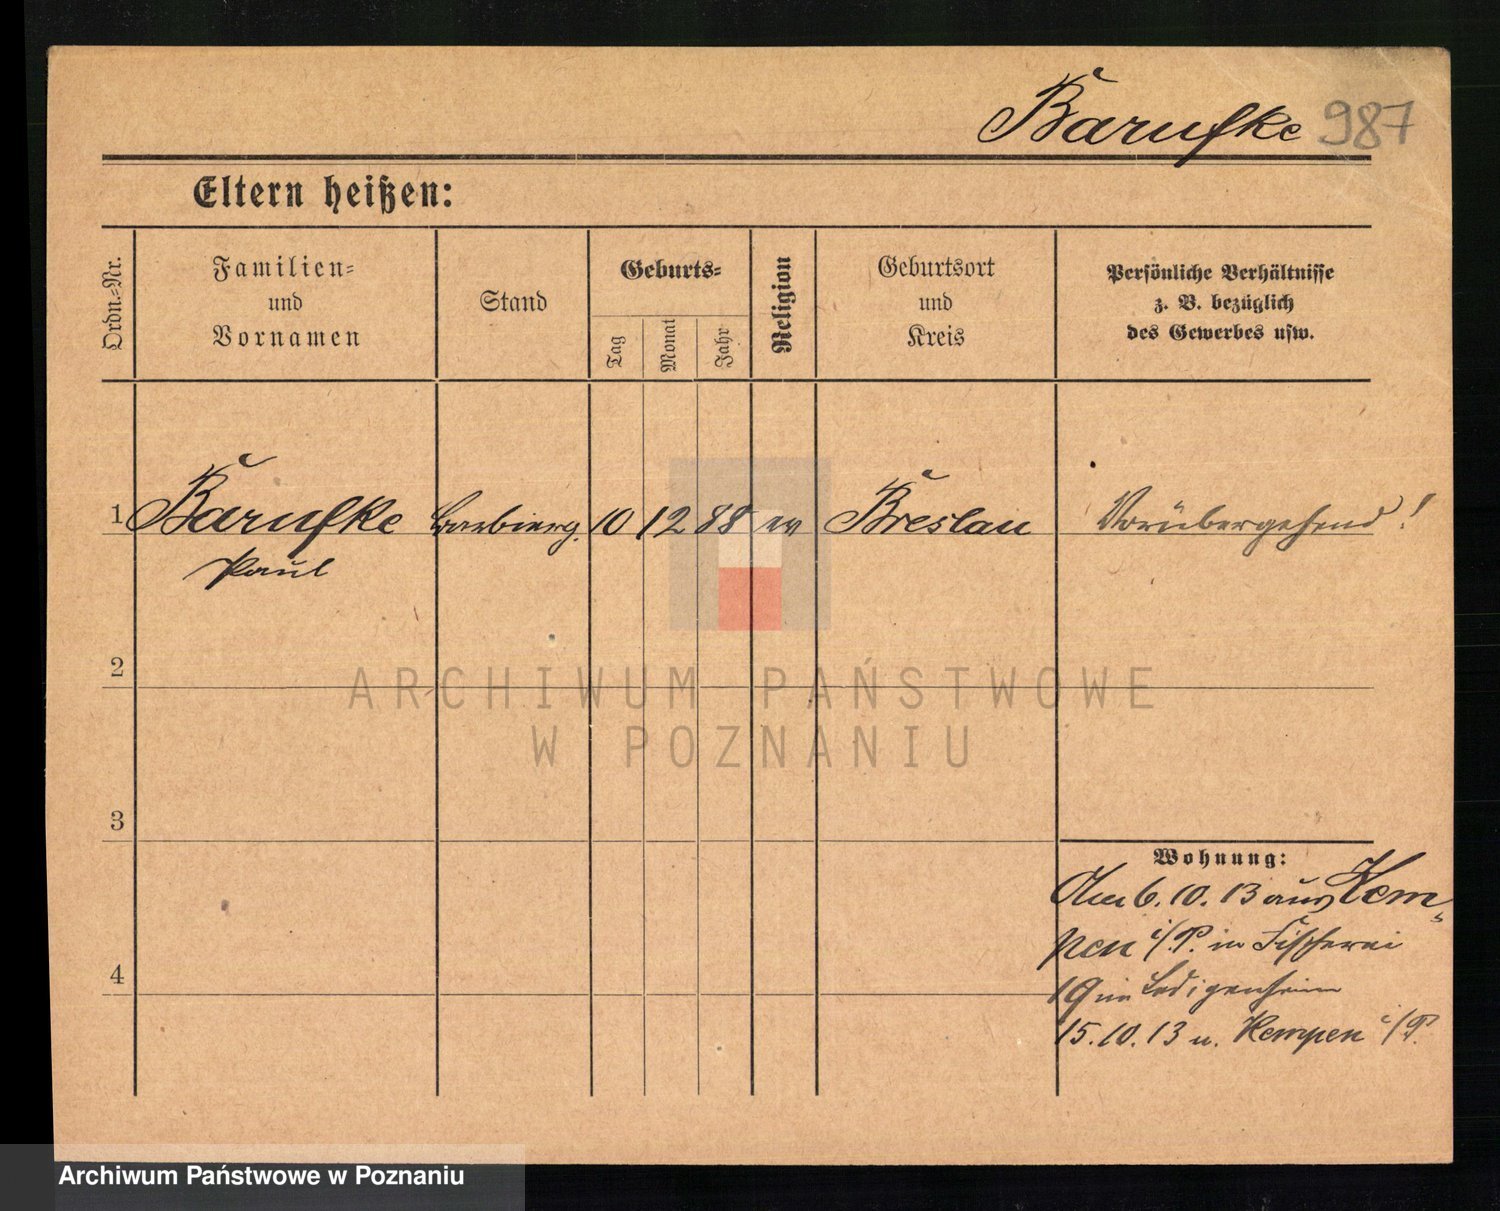 Barufke 987
Eltern heißen:
Ordn.-Nr.
Familien-
und
Vornamen
Stand
Geburts-
Tag
Monat
Jahr
Religion
Geburtsort
und
Kreis
Persönliche Verhältnisse
z. B. bezüglich
des Gewerbes usw.
1 Barufke Barbierg. 10 12 88 ev Breslau Vorübergehend!
Paul
2
ARCHIWUM PAŃSTWOWE
W POZNANIU
3
Wohnung:
Am 6. 10. 13 aus Kem-
pen i/P. in Fischerei
19 im Ledigenheim
4
15. 10. 13 n. Kempen i/P.
Archiwum Państwowe w Poznaniu